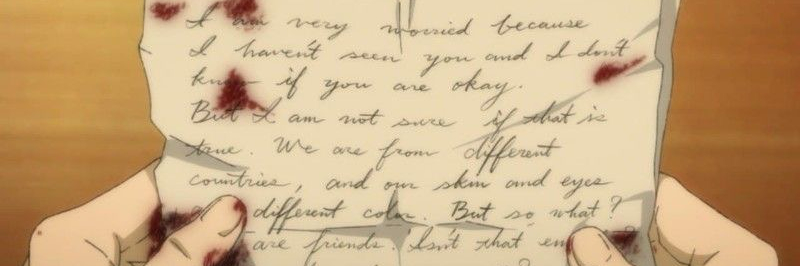 I am very worried because
I haven't seen you and I don't
know if you are okay.
But I am not sure if that is
true. We are from different
countries, and our skin and eyes
different color. But so what?
are friends. Isn't that